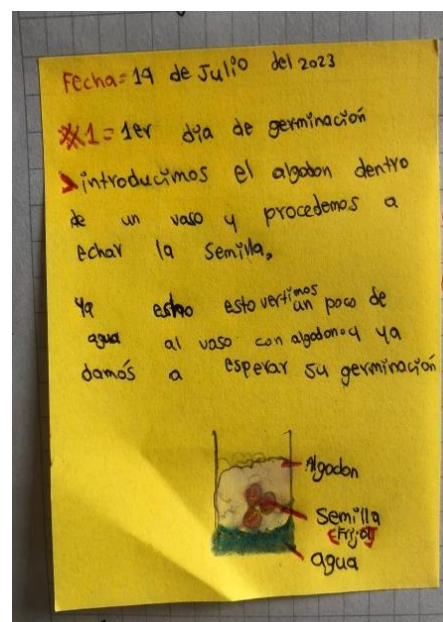 Fecha= 19 de Julio del 2023
※1= 1er dia de germinación
>introducimos el algodon dentro
de un vaso y procedemos a
echar la semilla,
Ya esto vertimos un poco de
agua al vaso con algodon y ya
damos a esperar su germinación
Algodon
Semilla
(Frijol)
agua